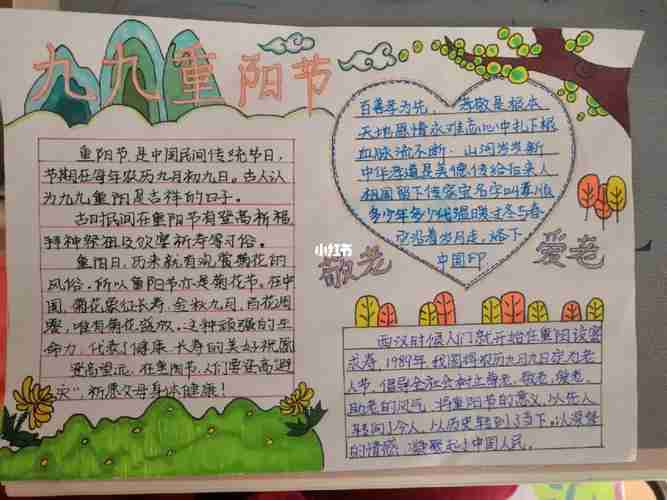 九九重阳节
重阳节是中国民间传统节日,
节期在每年农历九月初九日。古人认
为九九重阳是吉祥的日子。
古时民间在重阳节有登高祈福
拜神祭祖及饮宴祈寿等习俗。
重阳日,历来就有观赏菊花的
风俗。所以重阳节亦是菊花节。在中
国,菊花象征长寿,金秋九月,百花凋
零,唯有菊花盛放。这种顽强的生
命力,代表了健康、长寿的美好祝愿
登高望远,在重阳节人们要登高避
灾",祈愿父母身体健康!
百善孝为先, 尊敬是根本
天地恩情永难忘心中扎下根
血脉流不断,山河岁岁新
中华孝道是美德传给后来人
祖国留下传家宝名字叫孝心
多少年多少代温暖过冬与春
中国印
小红书
敬老
爱老
西汉时候人们就开始在重阳设宴
求寿,1989年,我国将农历九月九日定为老
人节,倡导全社会树立尊老、敬老、爱老、
助老的风气,将重阳节的意义,从先人
转向了今人,从历史转到了当下。以深挚
的情感,凝聚起了中国人民。